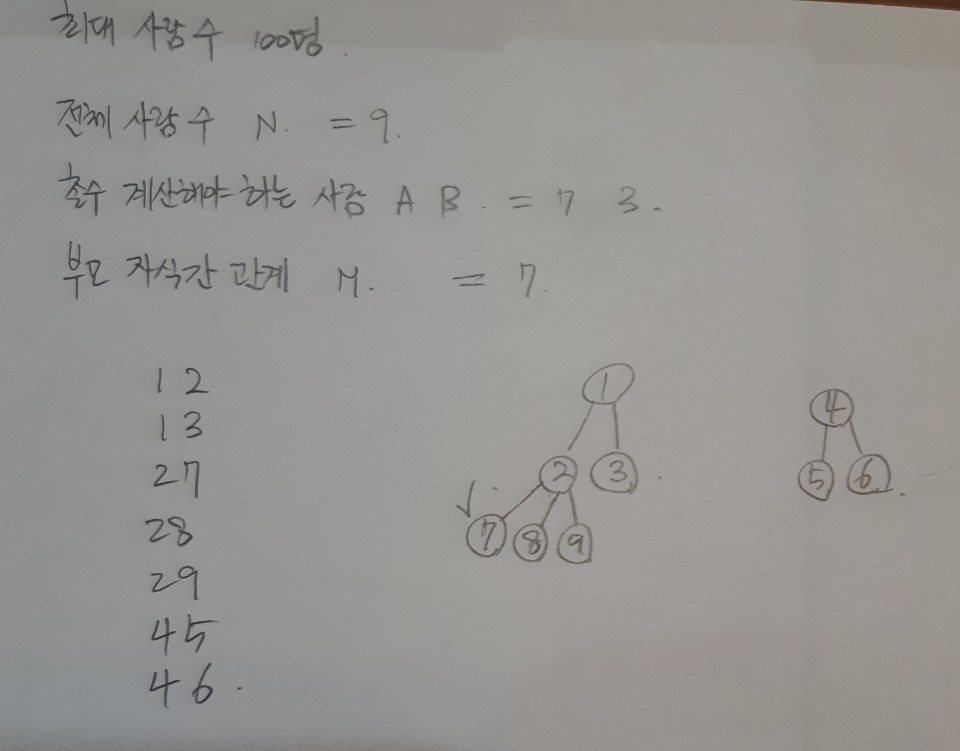 최대 사람 수 100명.
전체 사람 수 N. = 9.
촌수 계산해야 하는 사람 A B. = 7 3.
부모 자식간 관계 M. = 7.
1 2
1 3
2 7
2 8
2 9
4 5
4 6.
1
2 3.
7 8 9
4
5 6.